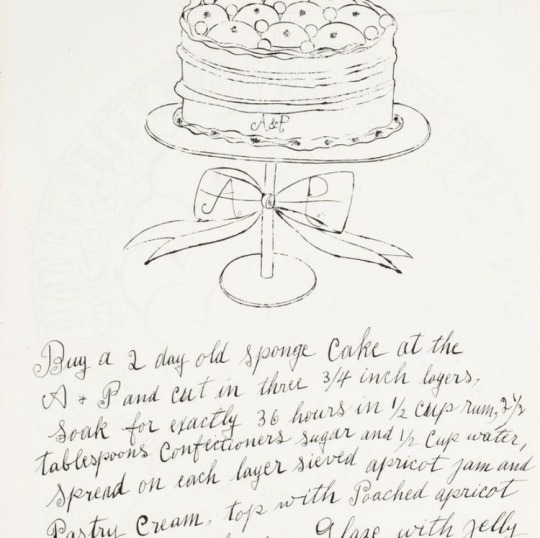 A&P
A P
Buy a 2 day old sponge Cake at the
A + P and cut in three 3/4 inch layers,
Soak for exactly 36 hours in 1/2 cup rum, 2 1/2
tablespoons Confectioners sugar and 1/2 Cup water,
Spread on each layer sieved apricot jam and
Pastry Cream, top with Poached apricot
Glaze with jelly